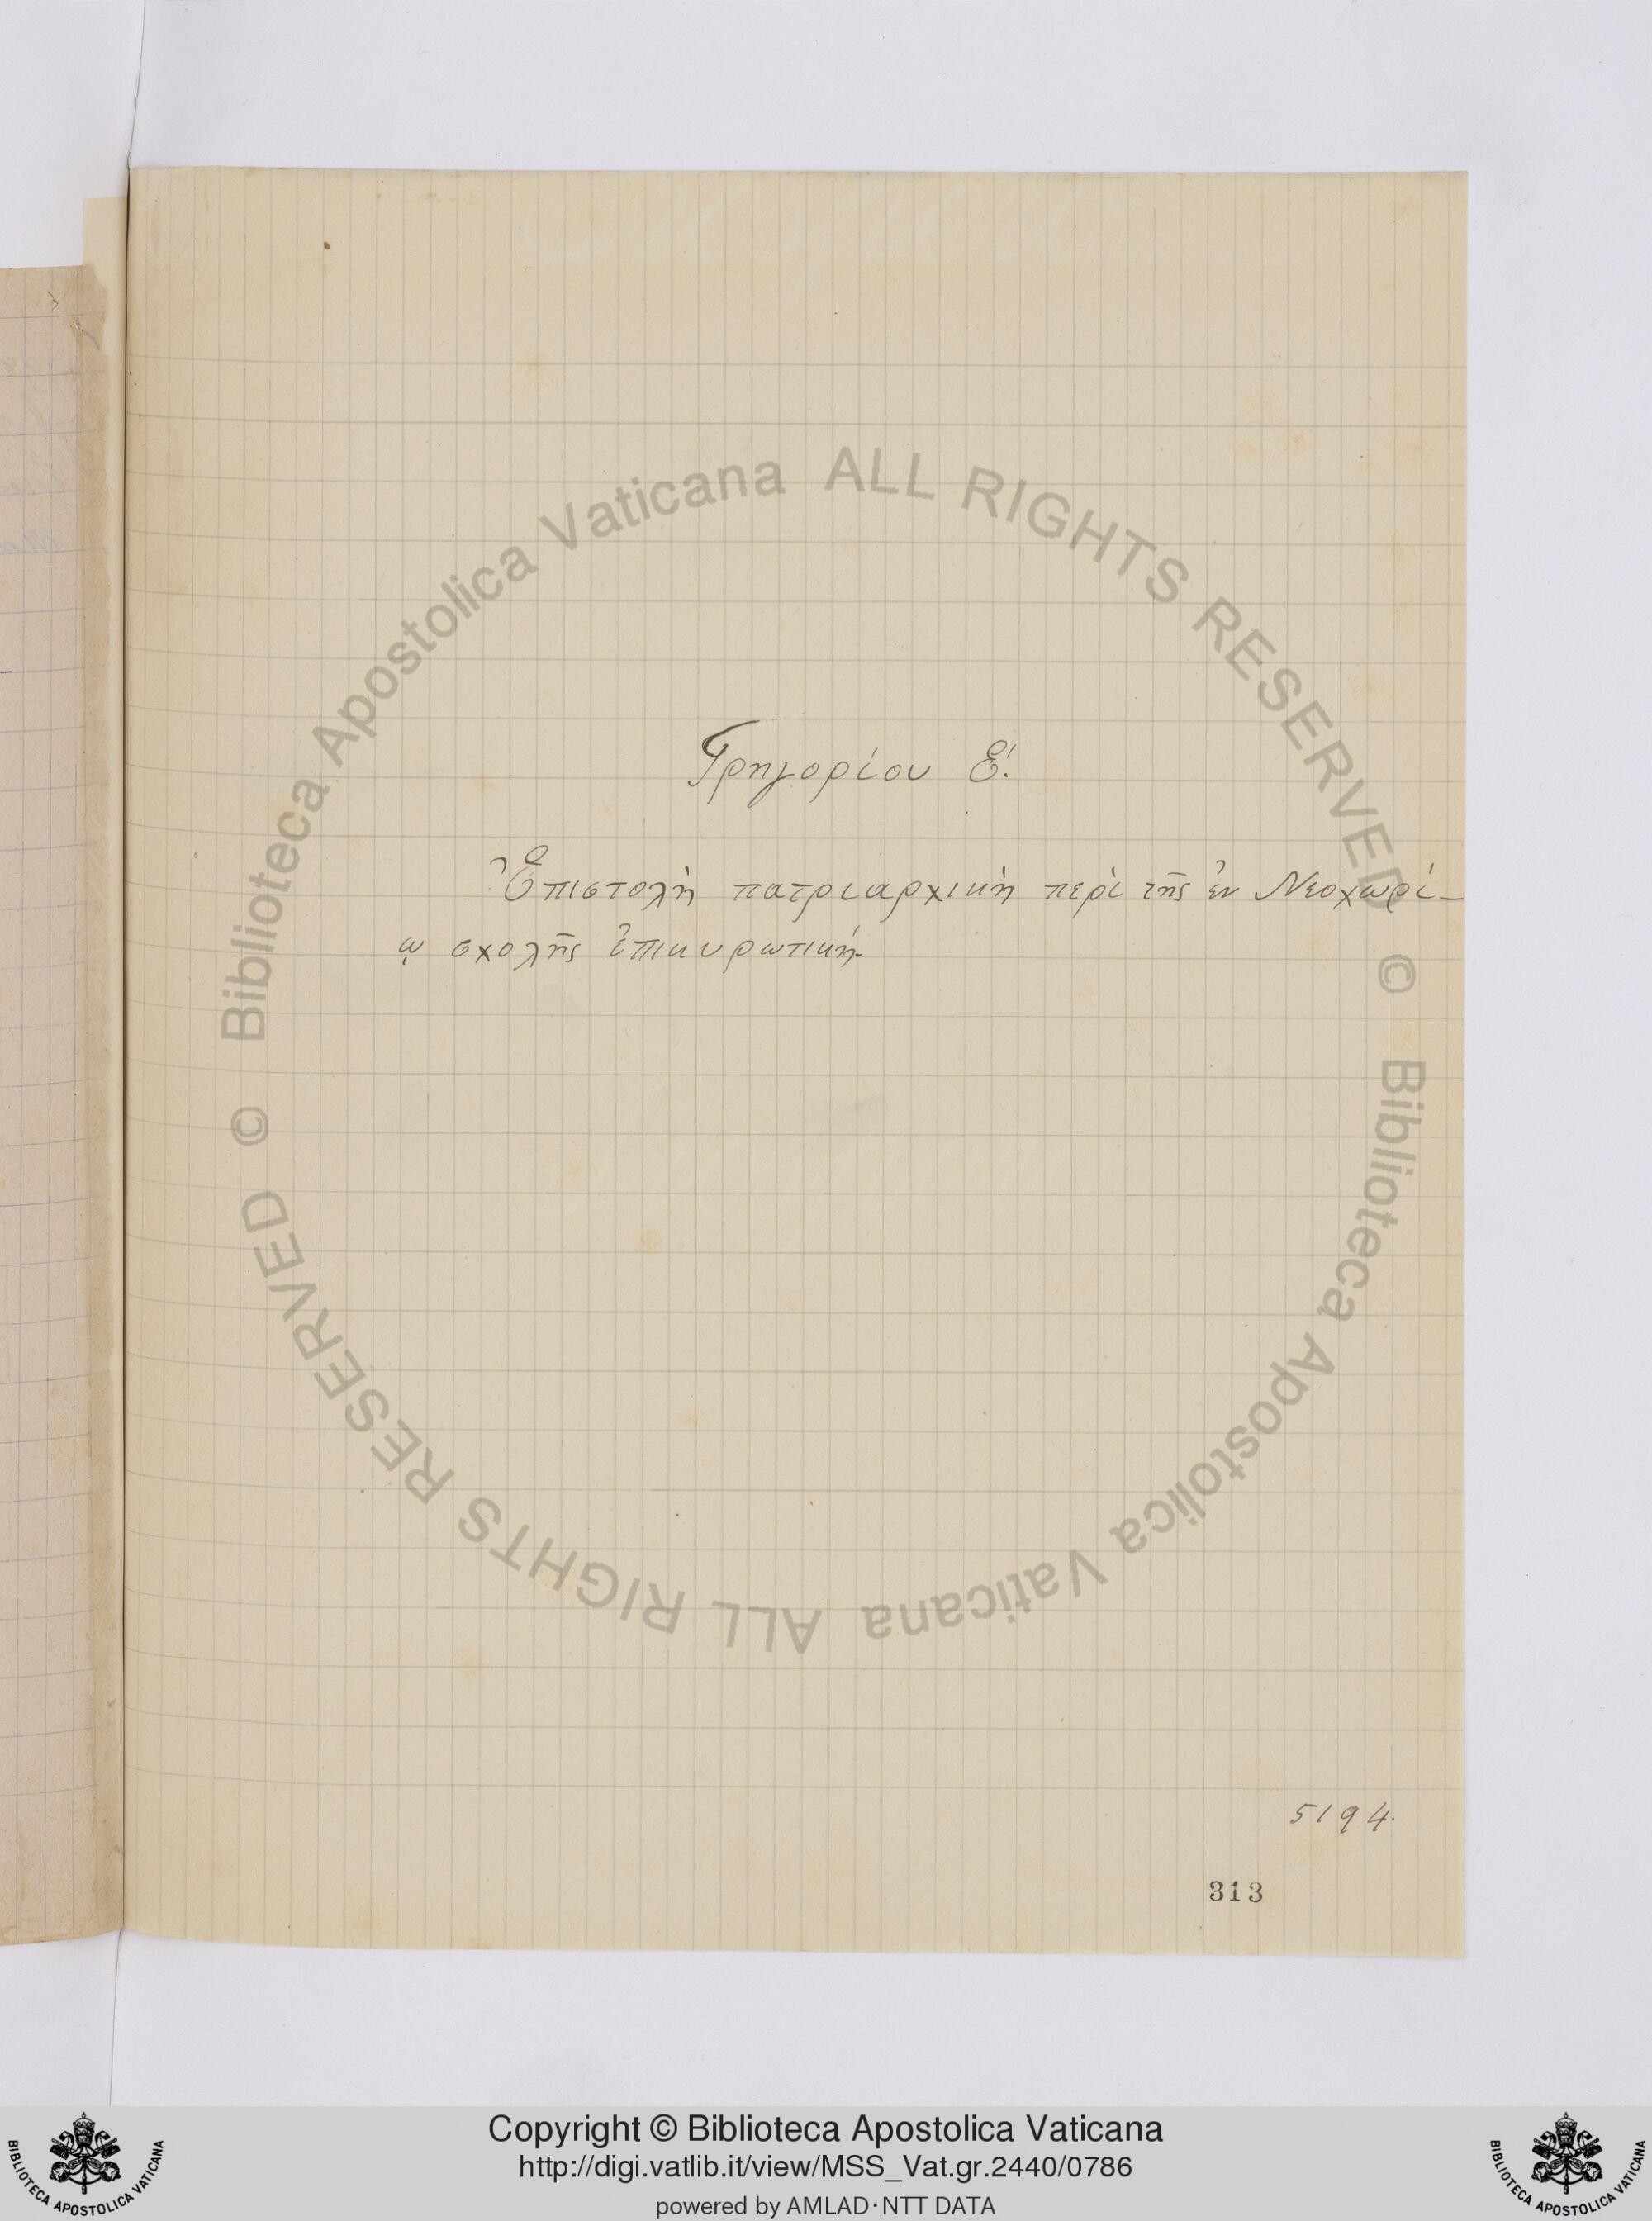 Γρηγορίου Ε΄.
Ἐπιστολὴ πατριαρχικὴ περὶ τῆς ἐν Νεοχωρί-
ῳ σχολῆς ἐπικυρωτική.
5194.
313
Biblioteca Apostolica Vaticana ALL RIGHTS RESERVED ©
Biblioteca Apostolica Vaticana ALL RIGHTS RESERVED ©
Copyright © Biblioteca Apostolica Vaticana
http://digi.vatlib.it/view/MSS_Vat.gr.2440/0786
powered by AMLAD·NTT DATA
BIBLIOTECA APOSTOLICA VATICANA
BIBLIOTECA APOSTOLICA VATICANA